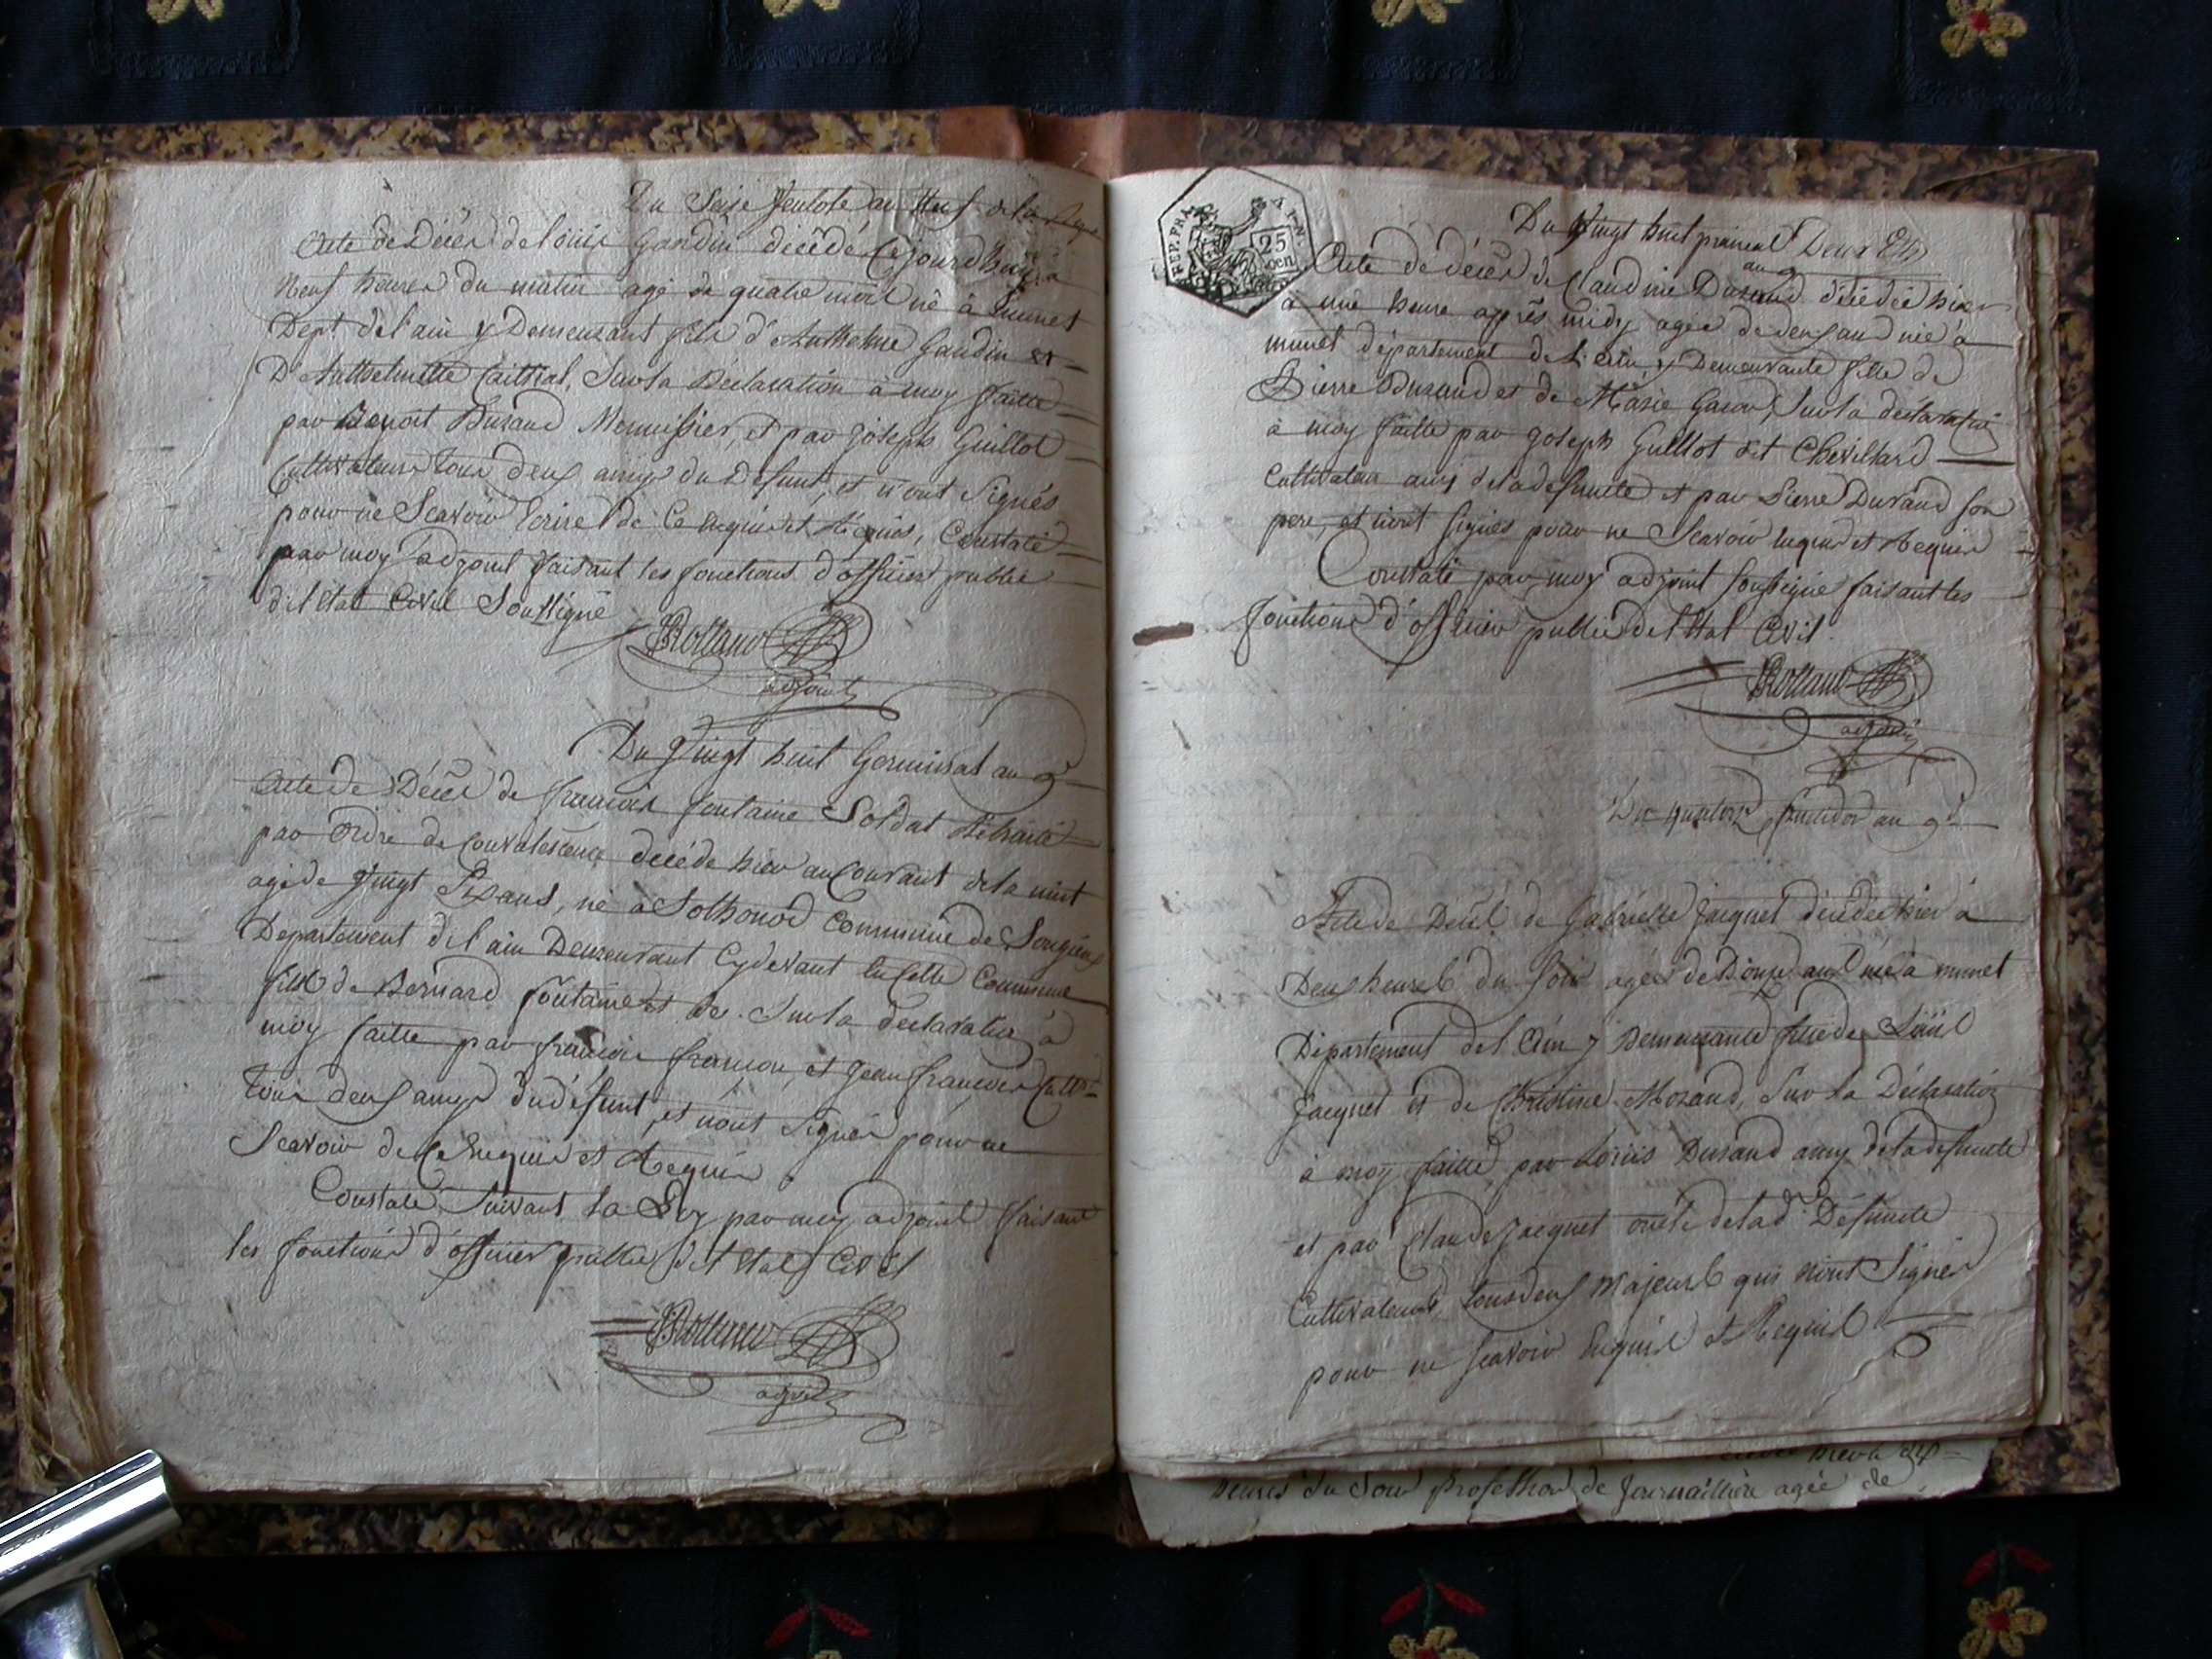 Du Seise Ventose an Neuf de la Repu
Acte de Décès de Louis Gandin décédé Cejourdhuy à
Neuf heures du matin agé de quatre mois né à Munet
Dept. de l'ain y Demeurant fils d'Anthelme Gandin et
D'Anthelmette, Sur la Déclaration à moy faitte
par Benoit Durand Menuissier, et par joseph Guillot
Cultivateurs tous deux amys du Defunt, et n'ont Signés
pour ne Scavoir Ecrire de Ce enquis et Requis, Constaté
par moy adjoint faisant les fonctions d'officier public
de l'état Civil Soussigné
Rolland
adjoint
Du Vingt huit Germinal an 9e
Acte de Décès de francois fontaine Soldat
par Ordre de Convalescence décédé hier au Courant de la nuit
agé de Vingt Six ans, né a Sothonod Commune de Songieu
Departement de l'ain Demeurant Cydevant en Cette Commune
fils de Bernard fontaine et de. Sur la declaration à
moy faitte par francois francon, et Jean francois Cult
Tous deux amys du défunt, et n'ont Signés pour ne
Scavoir de Ce Enquis et Requis
Constaté Suivant la Loy par moy adjoint faisant
les fonctions d'officier public de l'Etat Civil
Rolland
adjoint
REP. FRA
25
cen
Du Vingt huit prairial
an 9
Acte de décès de Claudine Durand décédée hier
à une heure après midy agée de deux ans née à
munet département de L'Ain, y Demeurante fille de
Pierre Durand et de Marie, Sur la déclaration
à moy faitte par joseph Guillot dit Chevillard
Cultivateur amy de la defunte et par Pierre Durand son
pere, et n'ont signés pour ne Scavoir enquis et Requis
Constaté par moy adjoint soussigné faisant les
fonctions d'officier public de l'Etat Civil.
Rolland
adjoint
Du quatorze an 9e
Acte de Décès de Gabrielle Jacquet décédée hier à
Deux heures du soir agée de Douze ans née à munet
Département de l'Ain y Demeurante fille de Louis
Jacquet et de Christine Morand, Sur la Déclaration
à moy faitte, par Louis Durand amy de la defunte
et par Claude Jacquet oncle de lad. Défunte
Cultivateurs, tous deux Majeurs qui n'ont Signés
pour ne scavoir Enquis et Requis
heures du Soir profession de Journaillière agée de